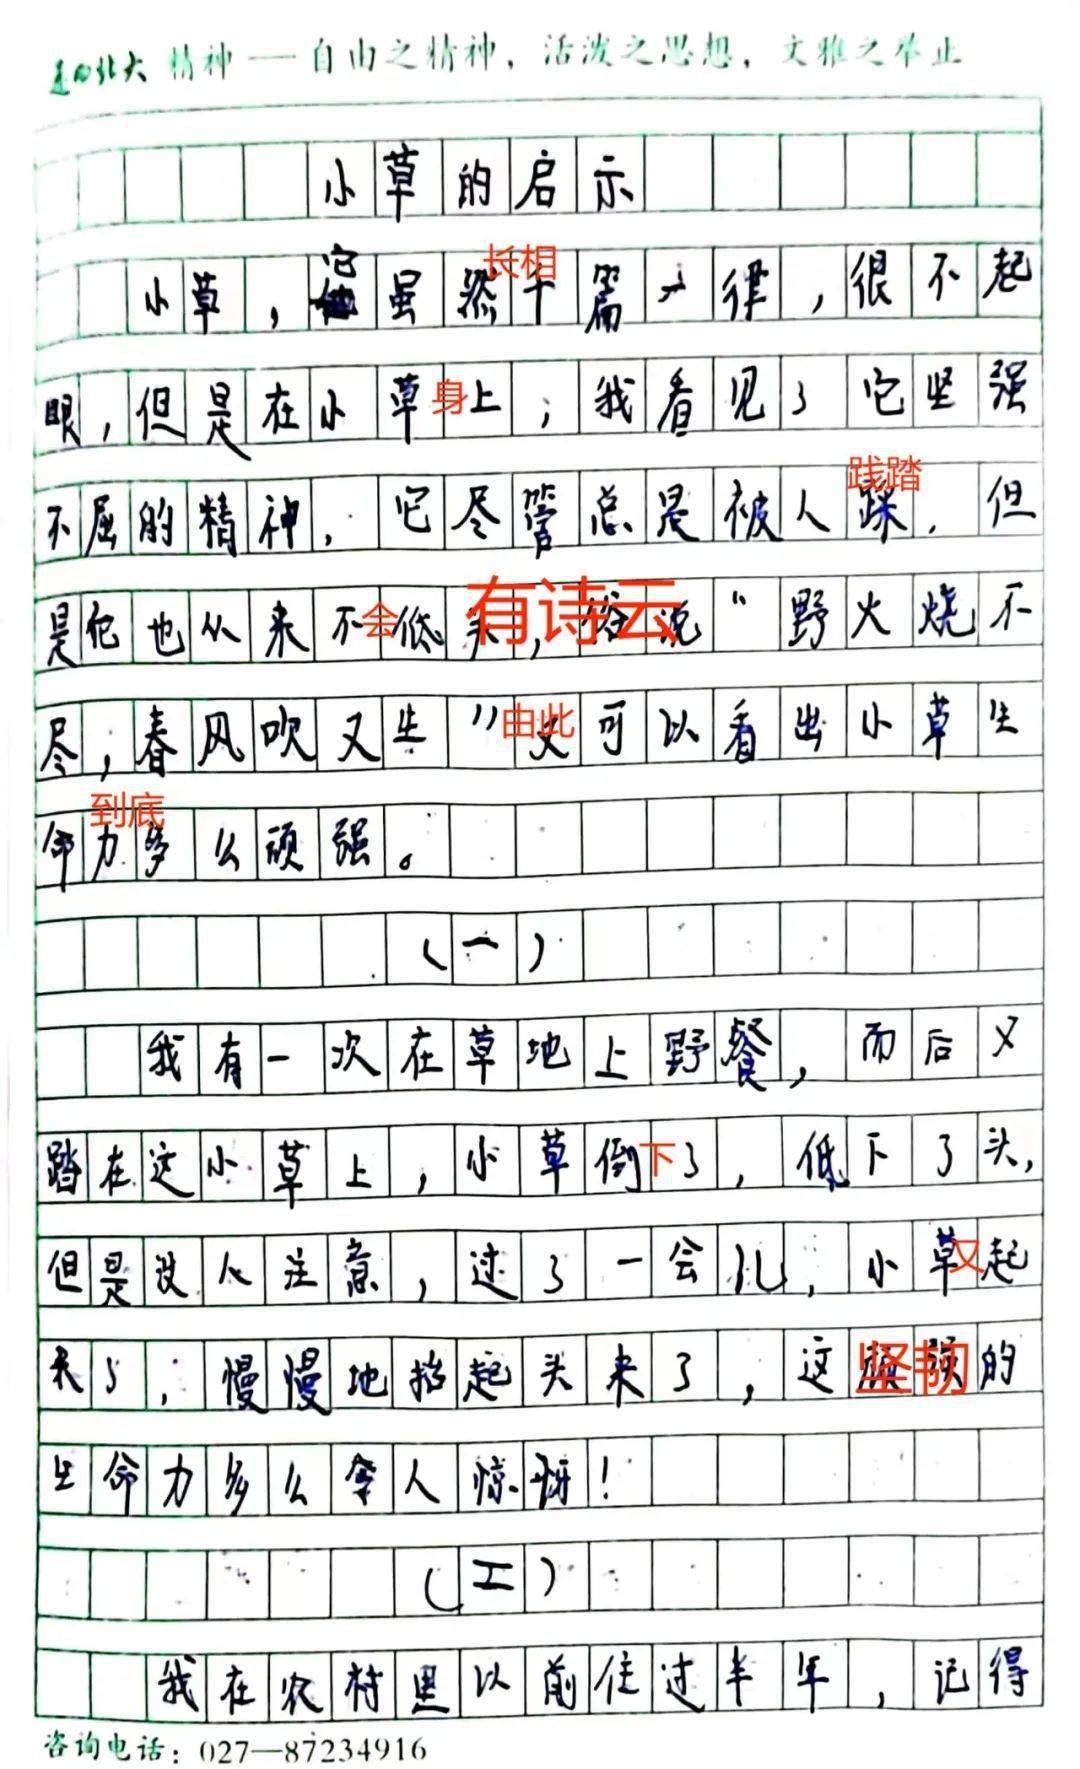 北大 精神 — 自由之精神，活泼之思想，文雅之举止
小草的启示
长相
小草，它虽然千篇一律，很不起
眼，但是在小草身上，我看见了它坚强
践踏
不屈的精神，它尽管总是被人踩，但
是他也从来不会低头，有诗云“野火烧不
由此
尽，春风吹又生”又可以看出小草生
到底
命力多么顽强。
（一）
我有一次在草地上野餐，而后又
踏在这小草上，小草倒下了，低下了头，
但是没人注意，过了一会儿，小草又起
来了，慢慢地抬起头来了，这坚韧的
生命力多么令人惊讶！
（二）
我在农村里以前住过半年，记得
咨询电话：027—87234916